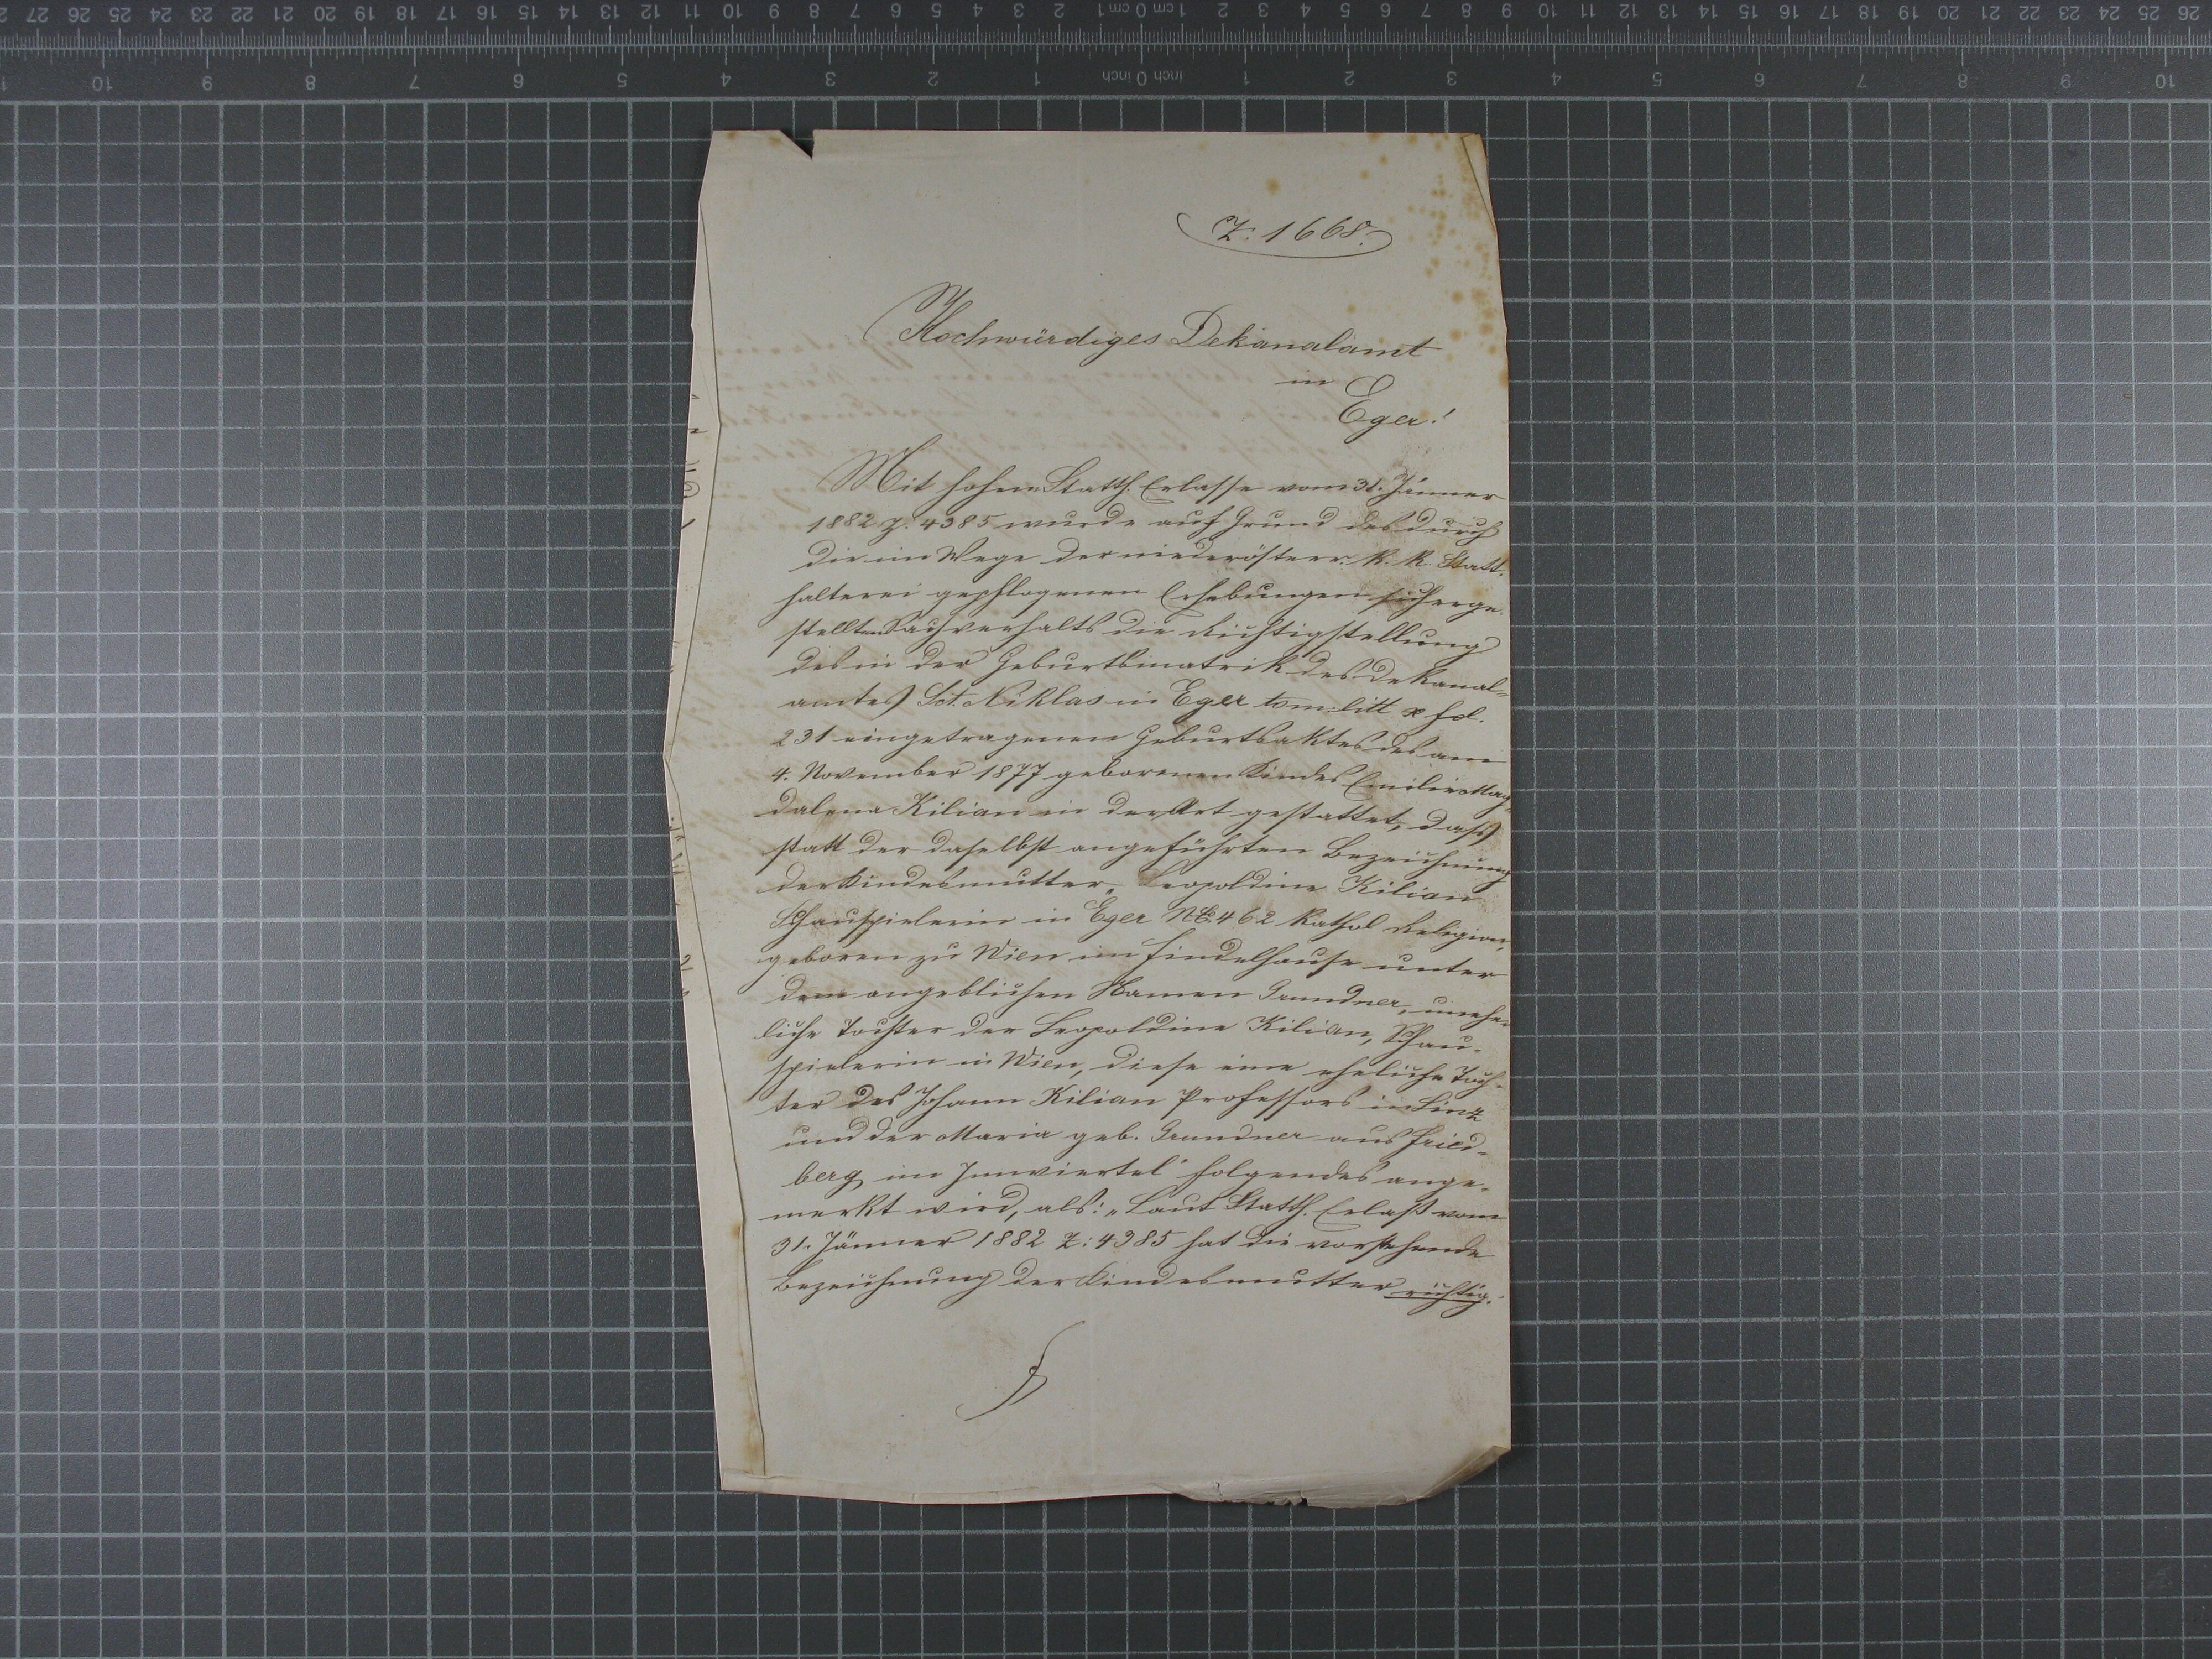 Z: 1668.
Hochwürdiges Dekanalamt
in
Eger!
Mit hohem Statth. Erlasse vom 31. Jänner
1882 Z. 4385 wurde auf Grund des durch
die im Wege der niederösterr. k. k. Statt-
halterei gepflogenen Erhebungen sicherge-
stellten Sachverhalts die Richtigstellung
des in der Geburtsmatrik des Dekanal-
amtes Sct. Niklas in Eger tom. litt fol.
231 eingetragenen Geburtsaktes des am
4. November 1877 geborenen Kindes Emilie Mag-
dalena Kilian in der Art gestattet, dass
statt der daselbst angeführten Bezeichnung
der Kindesmutter „Leopoldine Kilian
Schauspielerin in Eger NC. 462 kathol Religion,
geboren zu Wien im Findelhause unter
dem angeblichen Namen Grundner, unehe-
liche Tochter der Leopoldine Kilian, Schau-
spielerin in Wien, diese eine eheliche Toch-
ter des Johann Kilian Professors in Linz
und der Maria geb. Grundner aus Fried-
berg im Innviertel“ folgendes ange-
merkt wird, als: „Laut Statth. Erlaß vom
31. Jänner 1882 Z: 4385 hat die vorstehende
Bezeichnung der Kindesmutter richtig: